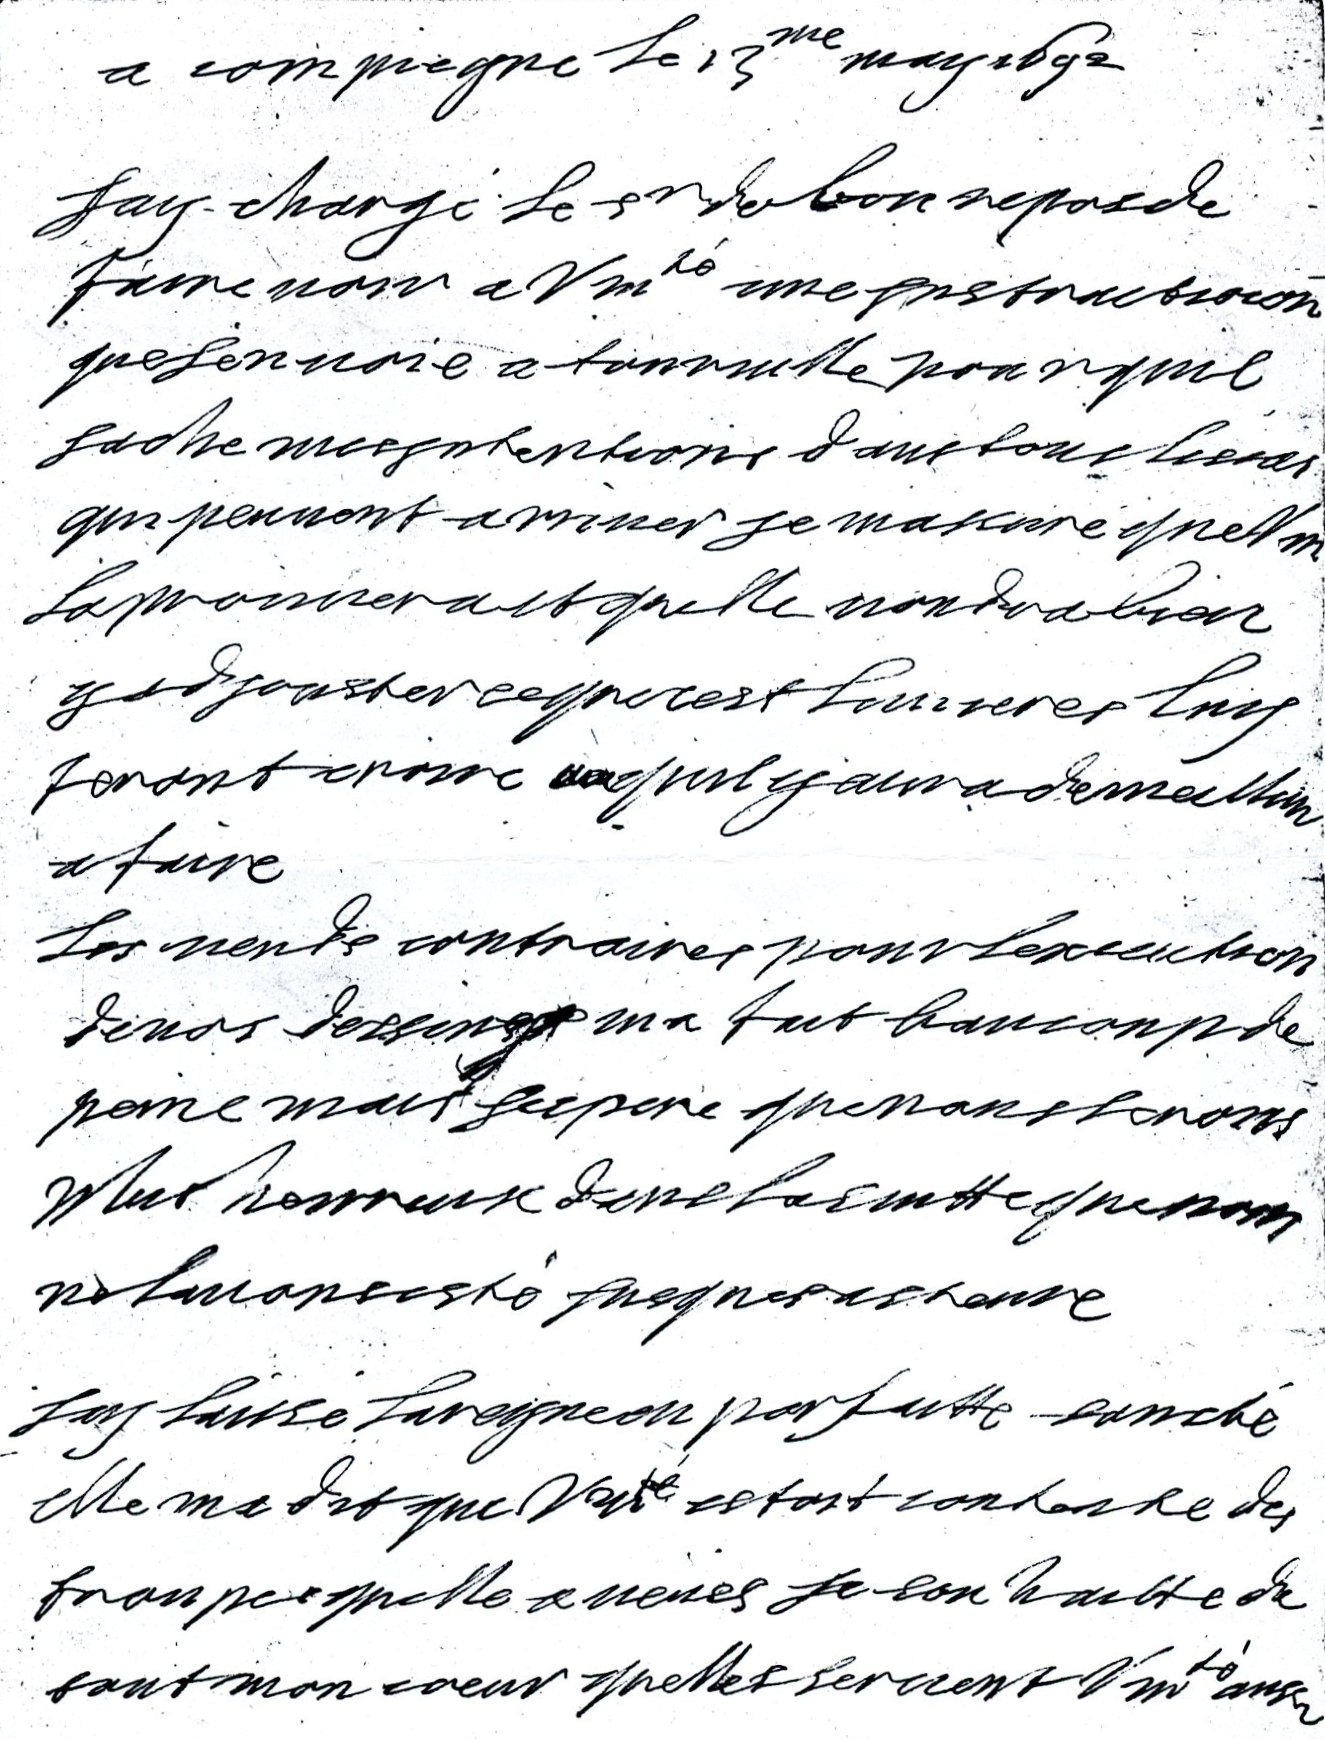 a compiegne le 13me may 1692
Jay chargé le sr de bonrepos de
faire voir a Vmté une jnstructioion
que jenuoie a tourville pour quil
sache mes jntentions dans tous les cas
qui peuuent arriuer je massure que Vm
laprouuera et quelle voudra bien
y adjouster ce que cest lumieres luy
feront croire quil y aura de meilleur
a faire
Les vents contraires pour lexecution
de nos desseins ma fait baucoup de
peine mais jespere que nous serons
plus heureux dans la suitte que nous
ne lauons esté jusques asteure
Jay laissé la reigne en parfaitte santé
elle ma dit que Vmté estoit contente des
troupes quelle a veües je souhaitte de
tout mon coeur quelles seruent Vmté aussi